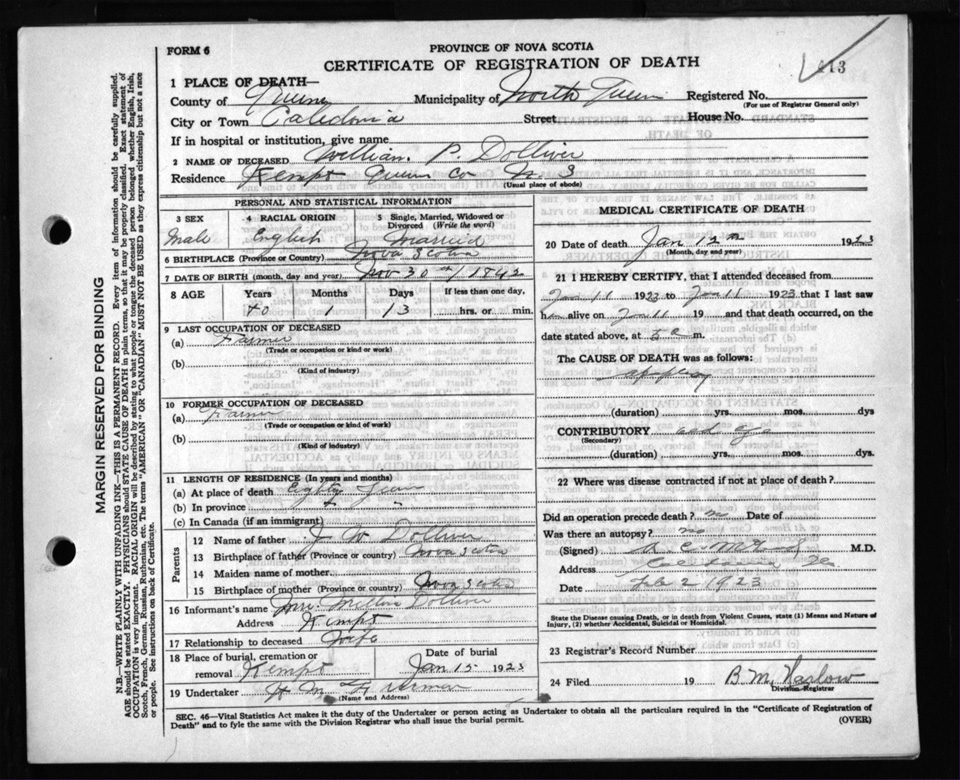 FORM 6
PROVINCE OF NOVA SCOTIA
CERTIFICATE OF REGISTRATION OF DEATH
113
1 PLACE OF DEATH—
County of Queens Municipality of North Queens Registered No.
(For use of Registrar General only)
City or Town Caledonia Street House No.
If in hospital or institution, give name
2 NAME OF DECEASED William P. Dolliver
Residence Kempt Queens Co N. S
(Usual place of abode)
PERSONAL AND STATISTICAL INFORMATION
3 SEX
Male
4 RACIAL ORIGIN
English
5 Single, Married, Widowed or Divorced (Write the word)
Married
6 BIRTHPLACE (Province or Country) Nova Scotia
7 DATE OF BIRTH (month, day and year) Nov 30th 1842
8 AGE Years Months Days If less than one day,
80 1 13 hrs. or min.
9 LAST OCCUPATION OF DECEASED
(a) Farmer
(Trade or occupation or kind or work)
(b)
(Kind of industry)
10 FORMER OCCUPATION OF DECEASED
(a) Farmer
(Trade or occupation or kind of work)
(b)
(Kind of industry)
11 LENGTH OF RESIDENCE (In years and months)
(a) At place of death Eighty Years
(b) In province " "
(c) In Canada (if an immigrant)
Parents
12 Name of father J W Dolliver
13 Birthplace of father (Province or country) Nova Scotia
14 Maiden name of mother
15 Birthplace of mother (Province or country) Nova Scotia
16 Informant's name Mrs. Dolliver
Address Kempt
17 Relationship to deceased Wife
18 Place of burial, cremation or removal Kempt
Date of burial
Jan 15 1923
19 Undertaker H M
(Name and Address)
MEDICAL CERTIFICATE OF DEATH
20 Date of death Jan 12th 1923
(Month, day and year)
21 I HEREBY CERTIFY, that I attended deceased from
Jan 11 1923 to Jan 11 1923 that I last saw
him alive on Jan 11 19 and that death occurred, on
date stated above, at m.
The CAUSE OF DEATH was as follows:
apoplexy
(duration) yrs. mos. dys
CONTRIBUTORY old age
(Secondary)
(duration) yrs. mos. dys
22 Where was disease contracted if not at place of death?
Did an operation precede death? no Date of
Was there an autopsy? no
(Signed) M.D.
Address Caledonia
Date Feb 2 1923
State the Disease causing Death, or in death from Violent Causes, state (1) Means and Nature of Injury, (2) whether Accidental, Suicidal or Homicidal.
23 Registrar's Record Number
24 Filed 19 B M Harlow
Division Registrar
SEC. 46—Vital Statistics Act makes it the duty of the Undertaker or person acting as Undertaker to obtain all the particulars required in the "Certificate of Registration of
Death" and to fyle the same with the Division Registrar who shall issue the burial permit.
(OVER)
MARGIN RESERVED FOR BINDING
N.B.—WRITE PLAINLY WITH UNFADING INK—THIS IS A PERMANENT RECORD. Every item of information should be carefully supplied.
AGE should be stated EXACTLY. PHYSICIANS should STATE CAUSE OF DEATH in plain terms, so that it may be properly classified. Exact statement of
OCCUPATION is very important. RACIAL ORIGIN will be described by stating to what people or tongue the deceased person belonged whether English, Irish,
Scotch, French, German, Russian, Ruthenian, etc. The terms "AMERICAN" OR "CANADIAN" MUST NOT BE USED as they express citizenship but not a race
or people. See instructions on back of Certificate.